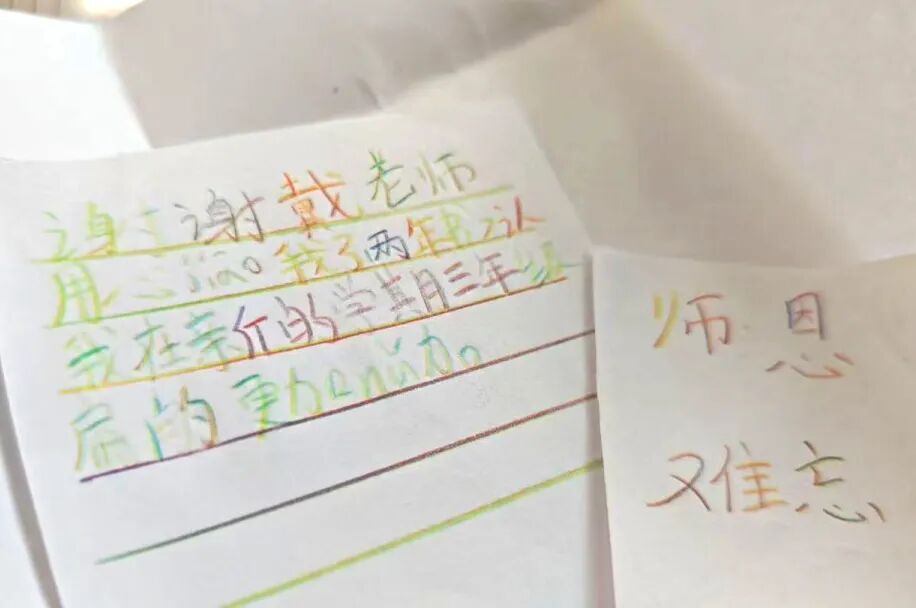 谢谢戴老师
用心jiao我了两年书,认
我在亲介的学其月三年级
后的更加nǔ力。
师恩
难忘